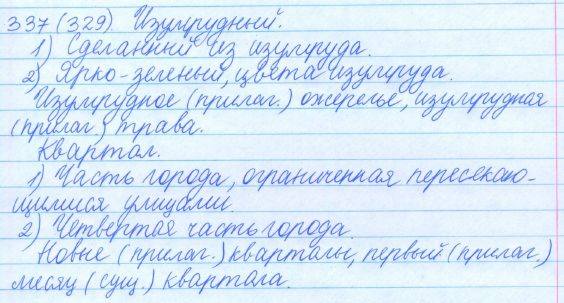 337 (329) Изумрудный.
1) Сделанный из изумруда.
2) Ярко-зеленый, цвета изумруда.
Изумрудное (прилаг.) ожерелье, изумрудная
(прилаг.) трава.
Квартал.
1) Часть города, ограниченная пересекаю-
щимися улицами.
2) Четвертая часть города.
Новые (прилаг.) кварталы, первый (прилаг.)
месяц (сущ.) квартала.